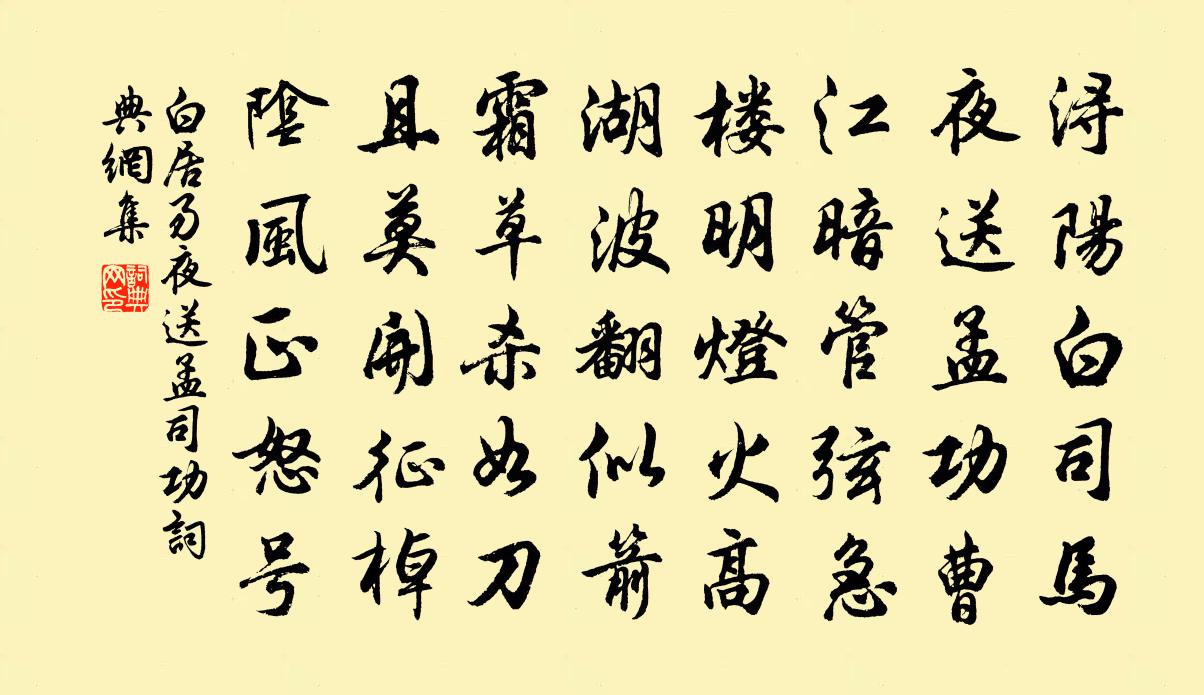 浔陽白司馬
夜送孟功曹
江暗管弦急
楼明燈火高
湖波翻似箭
霜草杀如刀
且莫開征棹
陰風正怒号
白居易夜送孟司功詞
典網集
詞典
网印